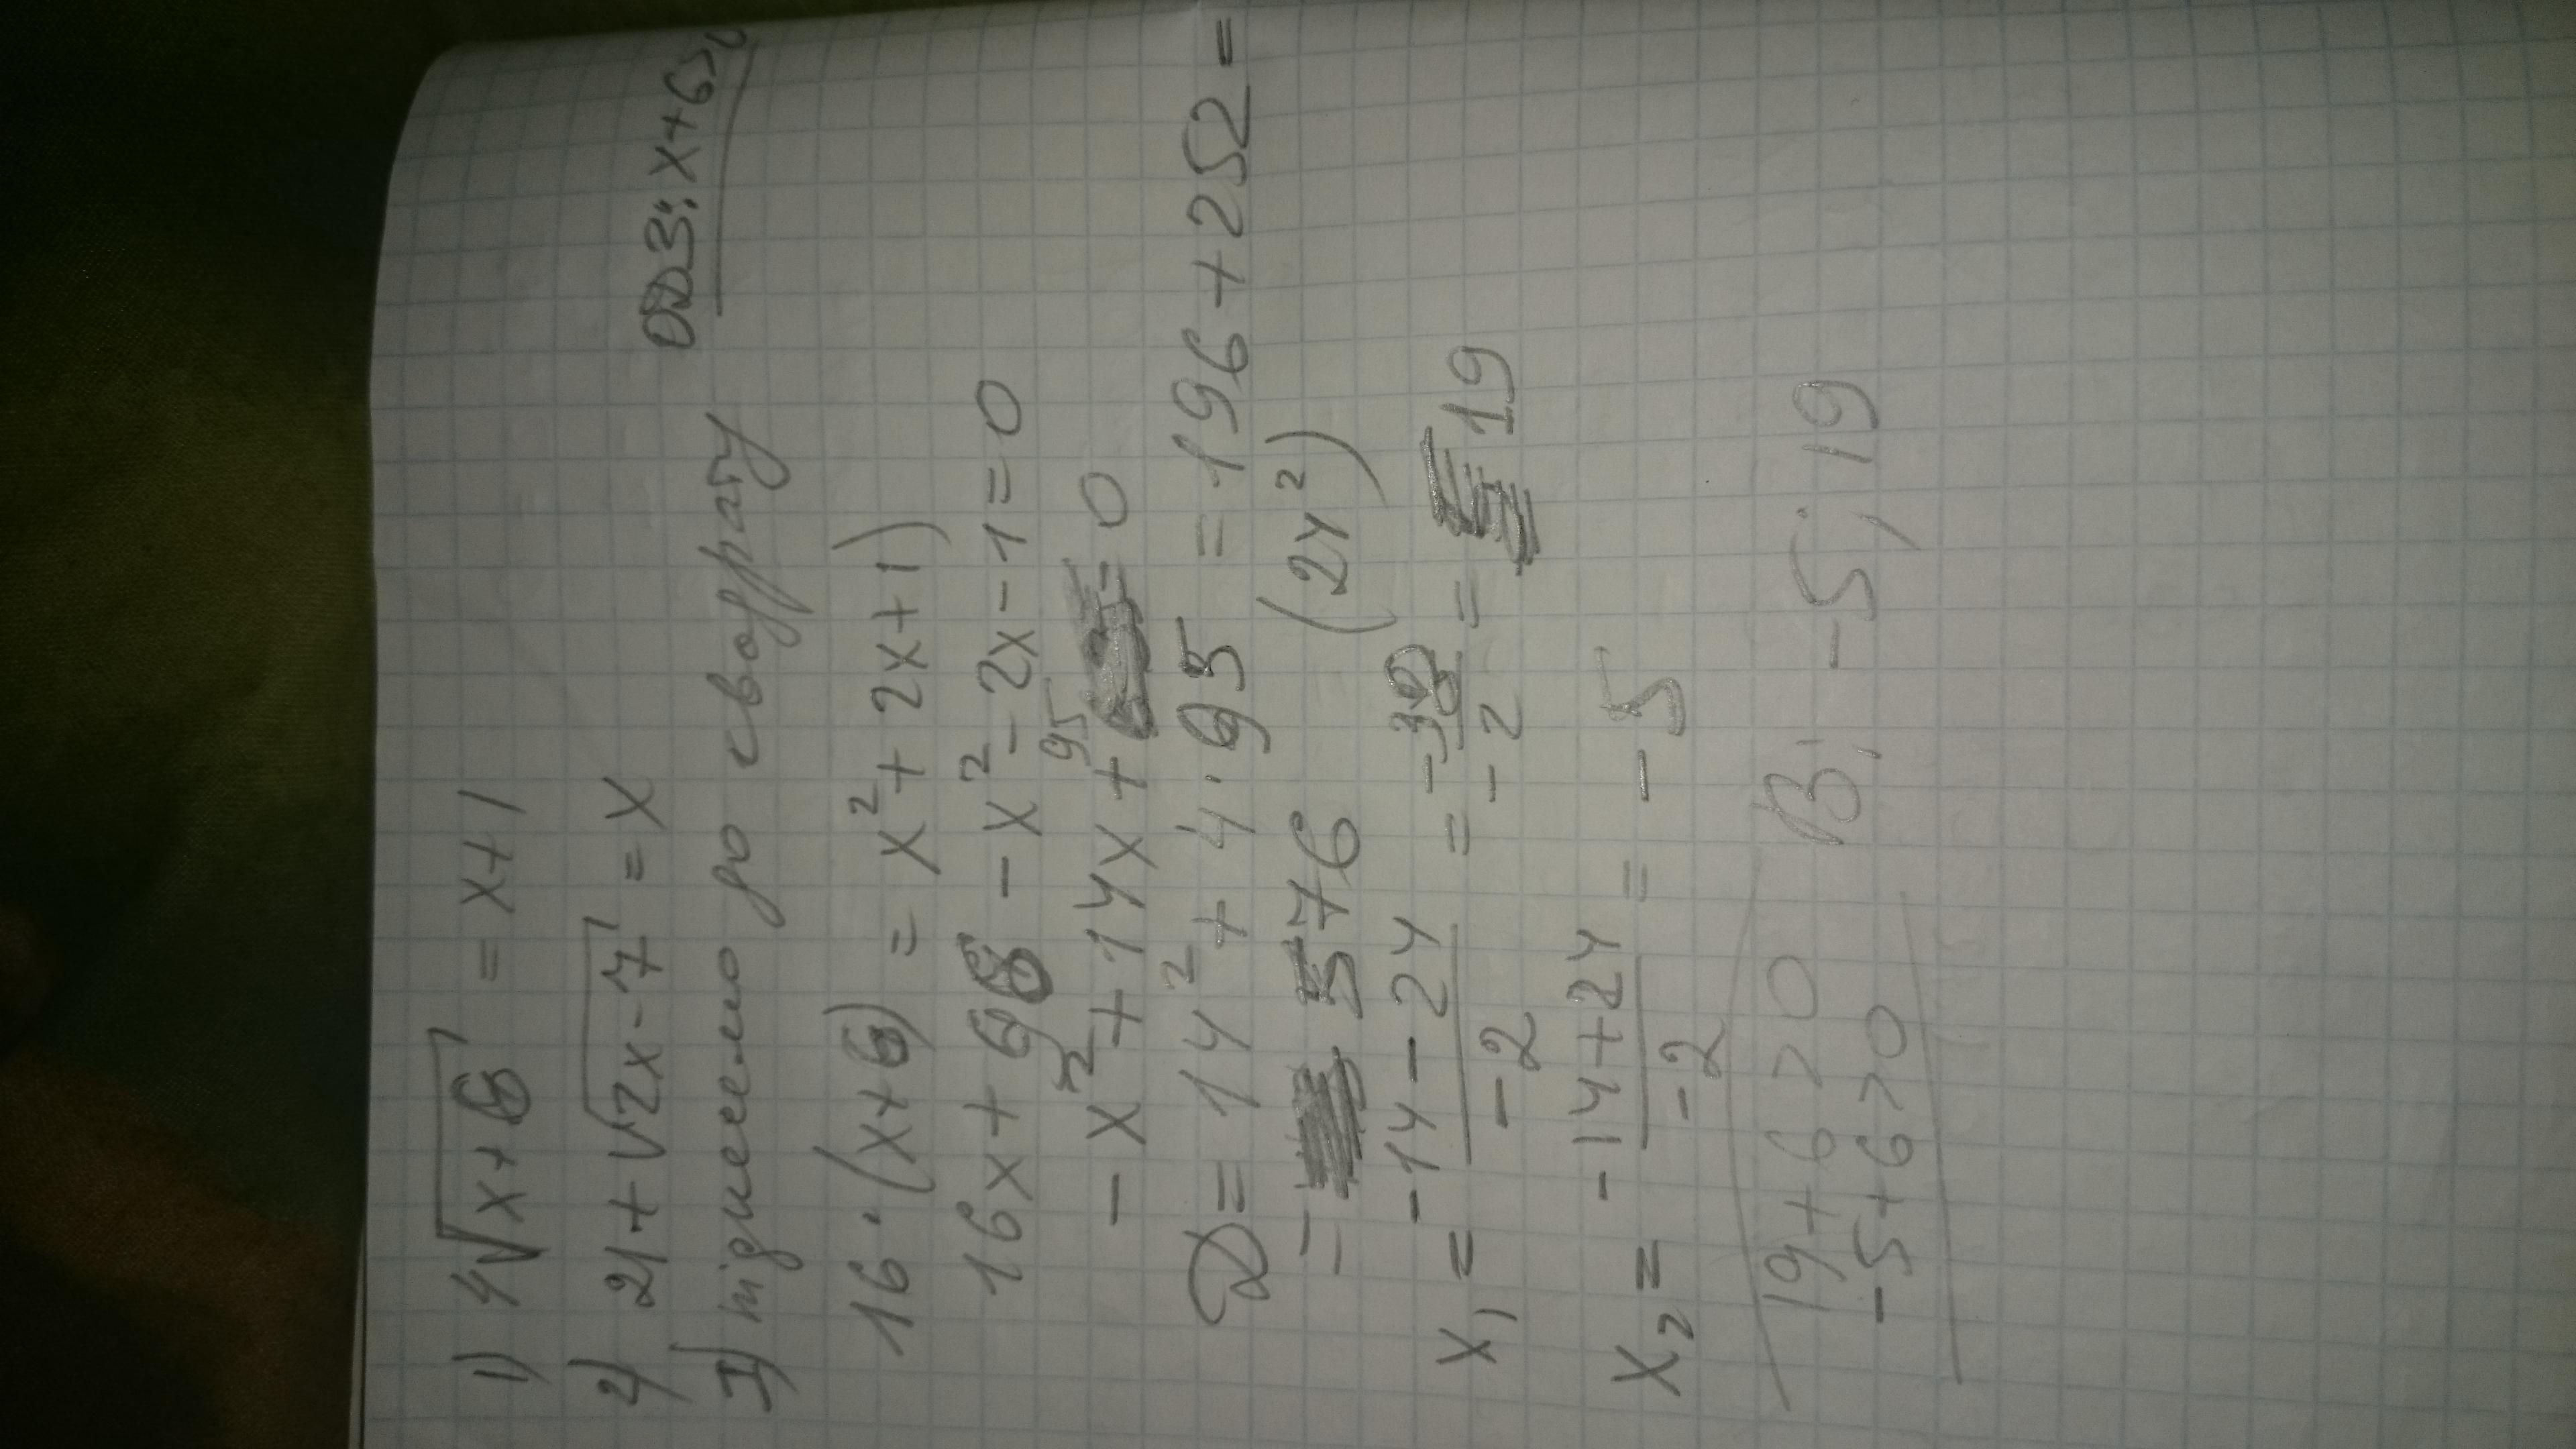 1) 4√x+6 = x+1
2) 21+√2x-7 = x
1) піднесемо до квадрату ОДЗ: x+6>0
16·(x+6) = x²+2x+1)
16x+96 -x²-2x-1=0
-x²+14x+95=0
D=14²+4·95 =196+252=
= 576 (24²)
x₁= -14-24/-2 = -38/-2 = 19
x₂= -14+24/-2 = -5
19+6>0 В: -5; 19
-5+6>0